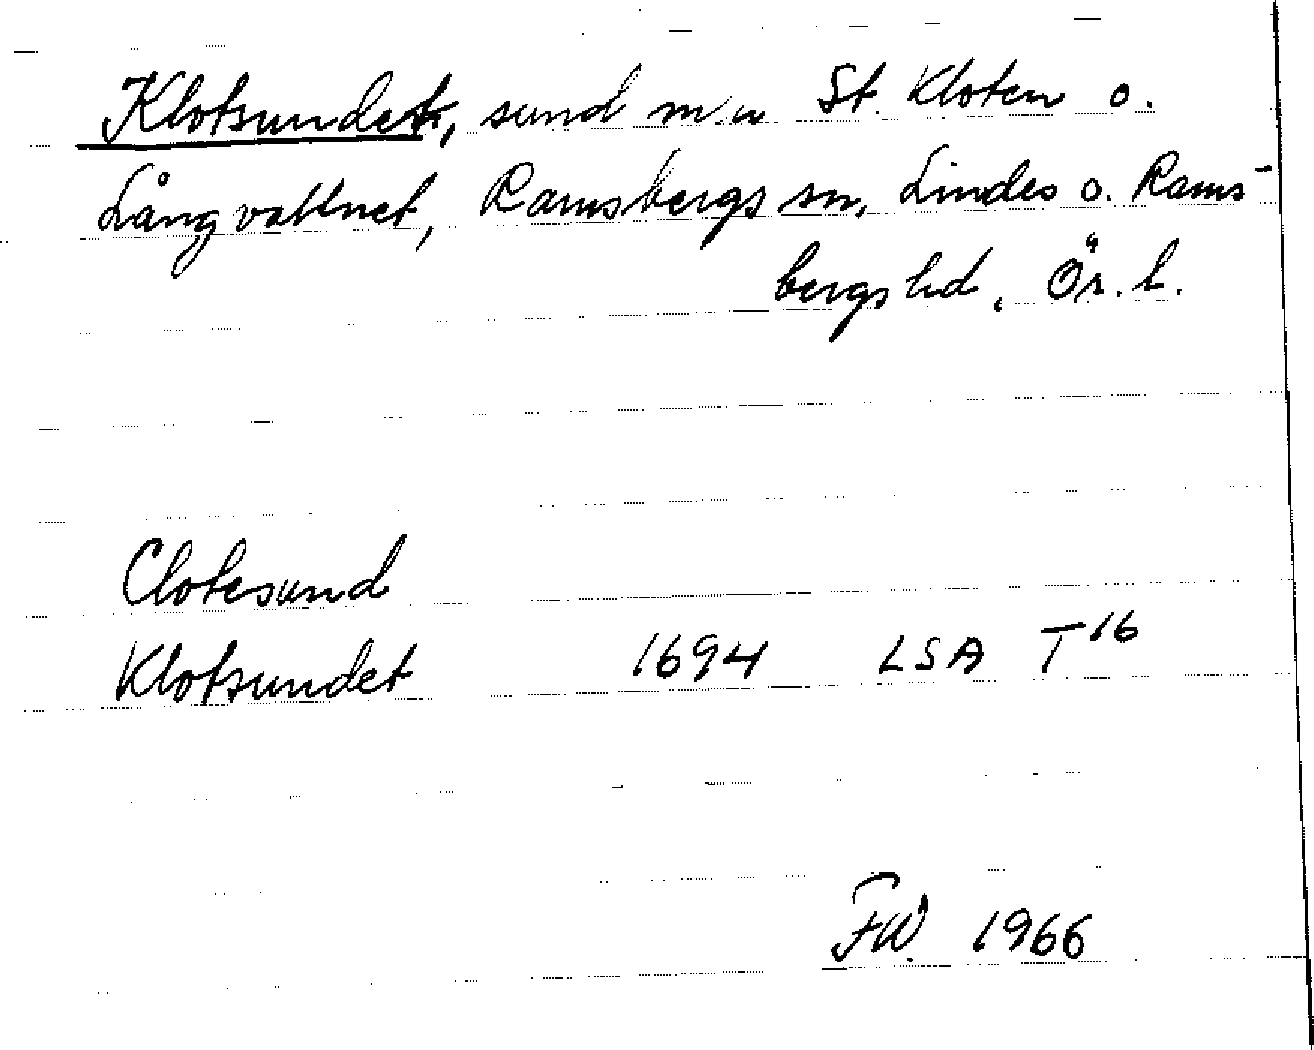 Klotsundet, sund m.n St. Kloten o.
Långvattnet, Ramsbergs sn, Lindes o. Rams-
bergs hd, Ör. l.
Clotesund
Klotsundet 1694 LSA T16
FW. 1966